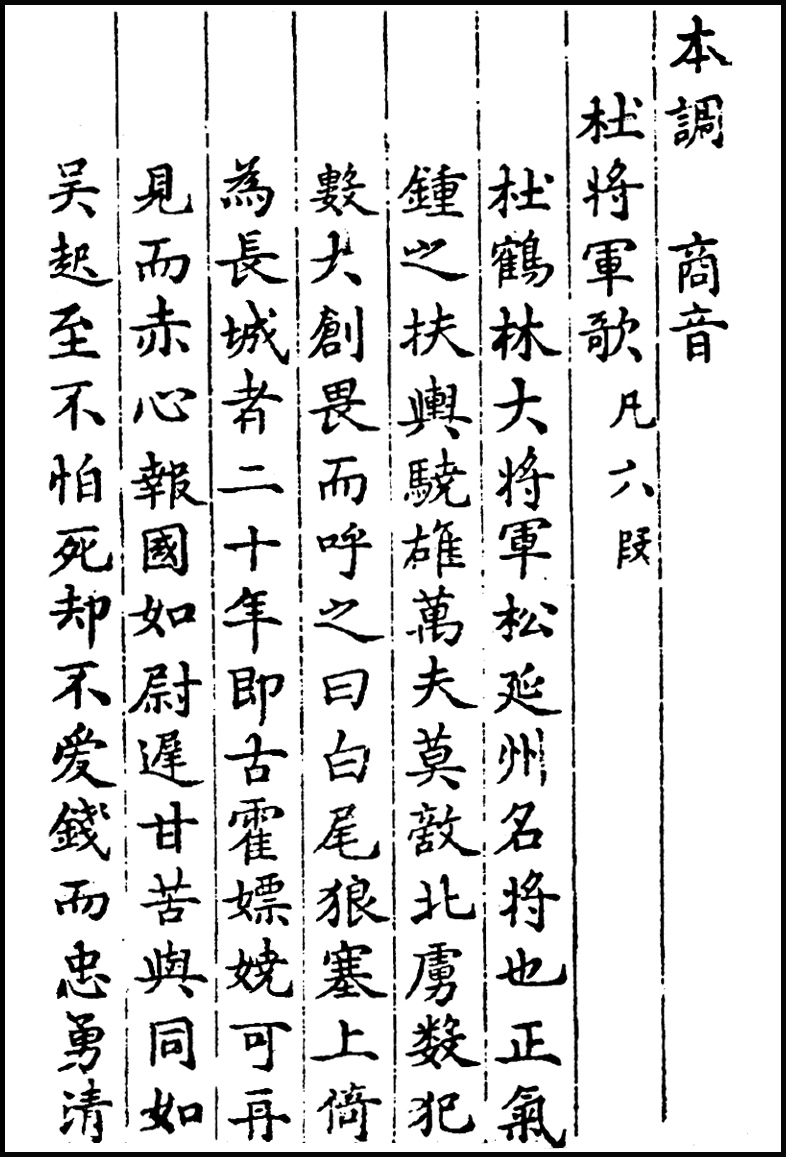 本調　商音
杜將軍歌　凡六段
杜鶴林大將軍松延州名將也正氣
鍾之扶輿驍雄萬夫莫敵北虜數犯
數大創畏而呼之曰白尾狼塞上倚
為長城者二十年即古霍嫖嬈可再
見而赤心報國如尉遲甘苦與同如
吴起至不怕死却不愛錢而忠勇清